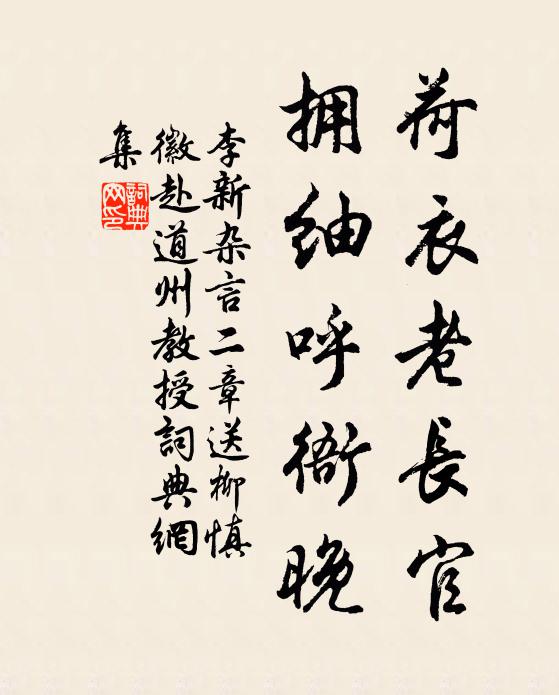 荷衣老長官
拥䌷呼衙晚
李新杂言二章送柳慎
徽赴道州教授詞典網
集
詞典
网印